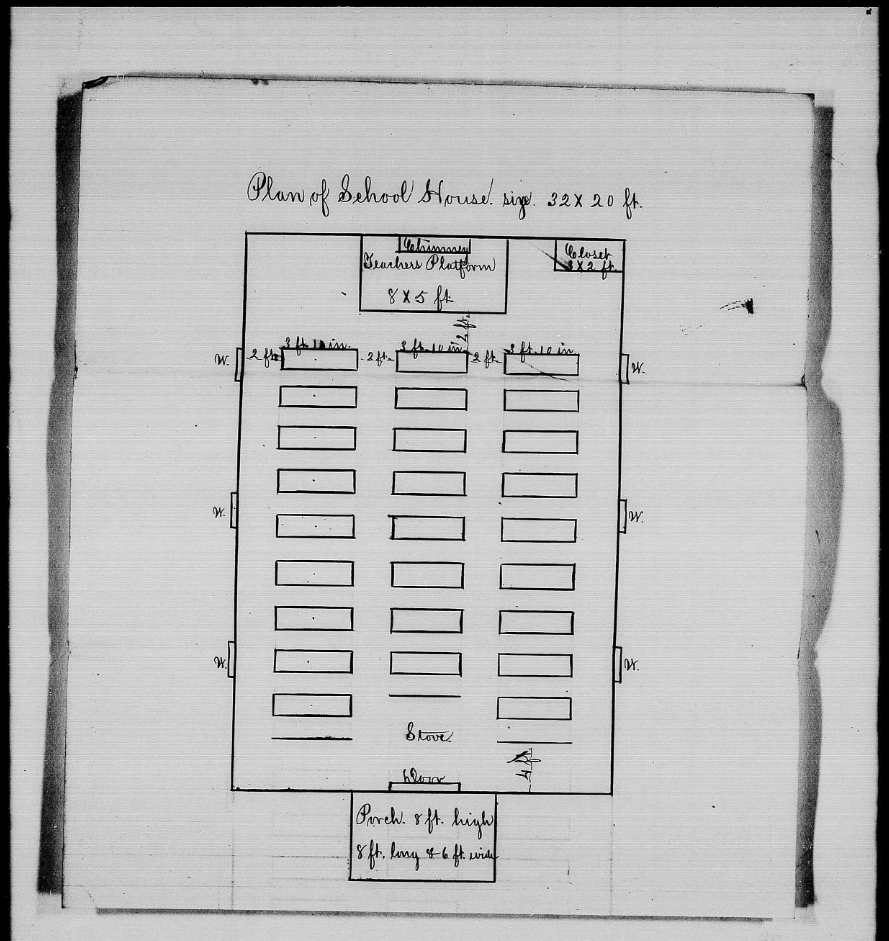 Plan of School House. size. 32 X 20 ft.
Chimney
Closet
3 X 2 ft.
Teachers Platform
8 X 5 ft
2 ft.
3 ft. 10 in. 3 ft. 10 in. 3 ft. 10 in
W. 2 ft. 2 ft. 2 ft. W.
W. W.
W. W.
Stove
4 ft
Door
Porch. 8 ft. high
8 ft. long & 6 ft. wide